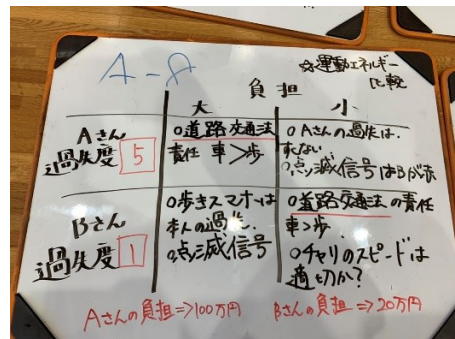 A-8
☆運動エネルギー
比較
負担
大
小
Aさん
過失度 5
○道路交通法
責任 車>歩
○Aさんの過失は、
すくない
○点滅信号はBが赤
Bさん
過失度 1
○歩きスマホは
本人の過失
○点滅信号
○道路交通法の責任
車>歩
○チャリのスピードは
適切か?
Aさんの負担⇒100万円
Bさんの負担⇒20万円